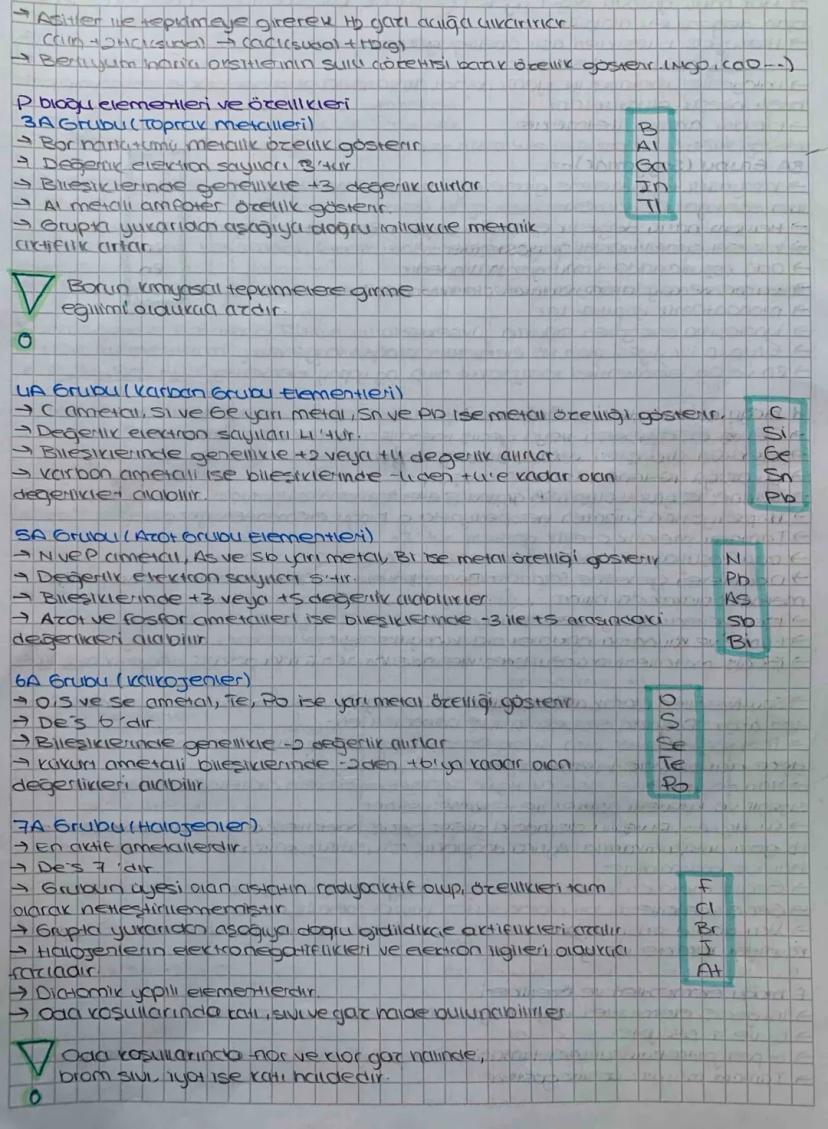 → Asitler ile tepkimeye girerek H2 gazı açığa çıkarırlar
Ca(k) + 2HCl(suda) → CaCl2(suda) + H2(g)
→ Berilyum hariç oksitlerinin sulu çözeltisi bazik özellik gösterir. (MgO, CaO--)
P bloğu elementleri ve özellikleri
3A Grubu (Toprak metalleri)
→ Bor hariç tümü metalik özellik gösterir
→ Değerlik elektron sayıları 3'tür
→ Bileşiklerinde genellikle +3 değerlik alırlar
→ Al metali amfoter özellik gösterir.
→ Grupta yukarıdan aşağıya doğru inildikçe metalik
aktiflik artar
B
Al
Ga
In
Tl
Borun kimyasal tepkimelere girme
eğilimi oldukça azdır.
4A Grubu (Karbon Grubu Elementleri)
→ C ametal, Si ve Ge yarı metal, Sn ve Pb ise metal özelliği gösterir.
→ Değerlik elektron sayıları 4'tür.
→ Bileşiklerinde genellikle +2 veya +4 değerlik alırlar
→ Karbon ametali ise bileşiklerinde -4'den +4'e kadar olan
değerlikler alabilir.
C
Si
Ge
Sn
Pb
5A Grubu (Azot Grubu Elementleri)
→ N ve P ametal, As ve Sb yarı metal, Bi ise metal özelliği gösterir
→ Değerlik elektron sayıları 5'tir.
→ Bileşiklerinde +3 veya +5 değerlik alabilirler
→ Azot ve fosfor ametalleri ise bileşiklerinde -3 ile +5 arasındaki
değerlikleri alabilir
N
Pb
As
Sb
Bi
6A Grubu (Kalkojenler)
→ O, S ve Se ametal, Te, Po ise yarı metal özelliği gösterir
→ De's 6'dır
→ Bileşiklerinde genellikle -2 değerlik alırlar
→ Kükürt ametali bileşiklerinde -2den +6'ya kadar olan
değerlikleri alabilir
O
S
Se
Te
Po
7A Grubu (Halojenler)
→ En aktif ametallerdir.
→ De's 7'dir
→ Grubun üyesi olan astatin radyoaktif olup, özellikleri tam
olarak netleştirilememiştir
→ Grupta yukarıdan aşağıya doğru gidildikçe aktiflikleri azalır.
→ Halojenlerin elektronegatiflikleri ve elektron ilgileri oldukça
fazladır
→ Diatomik yapılı elementlerdir.
→ Oda koşullarında katı, sıvı ve gaz halde bulunabilirler
F
Cl
Br
I
At
Oda koşullarında flor ve klor gaz halinde,
brom sıvı, iyot ise katı haldedir.